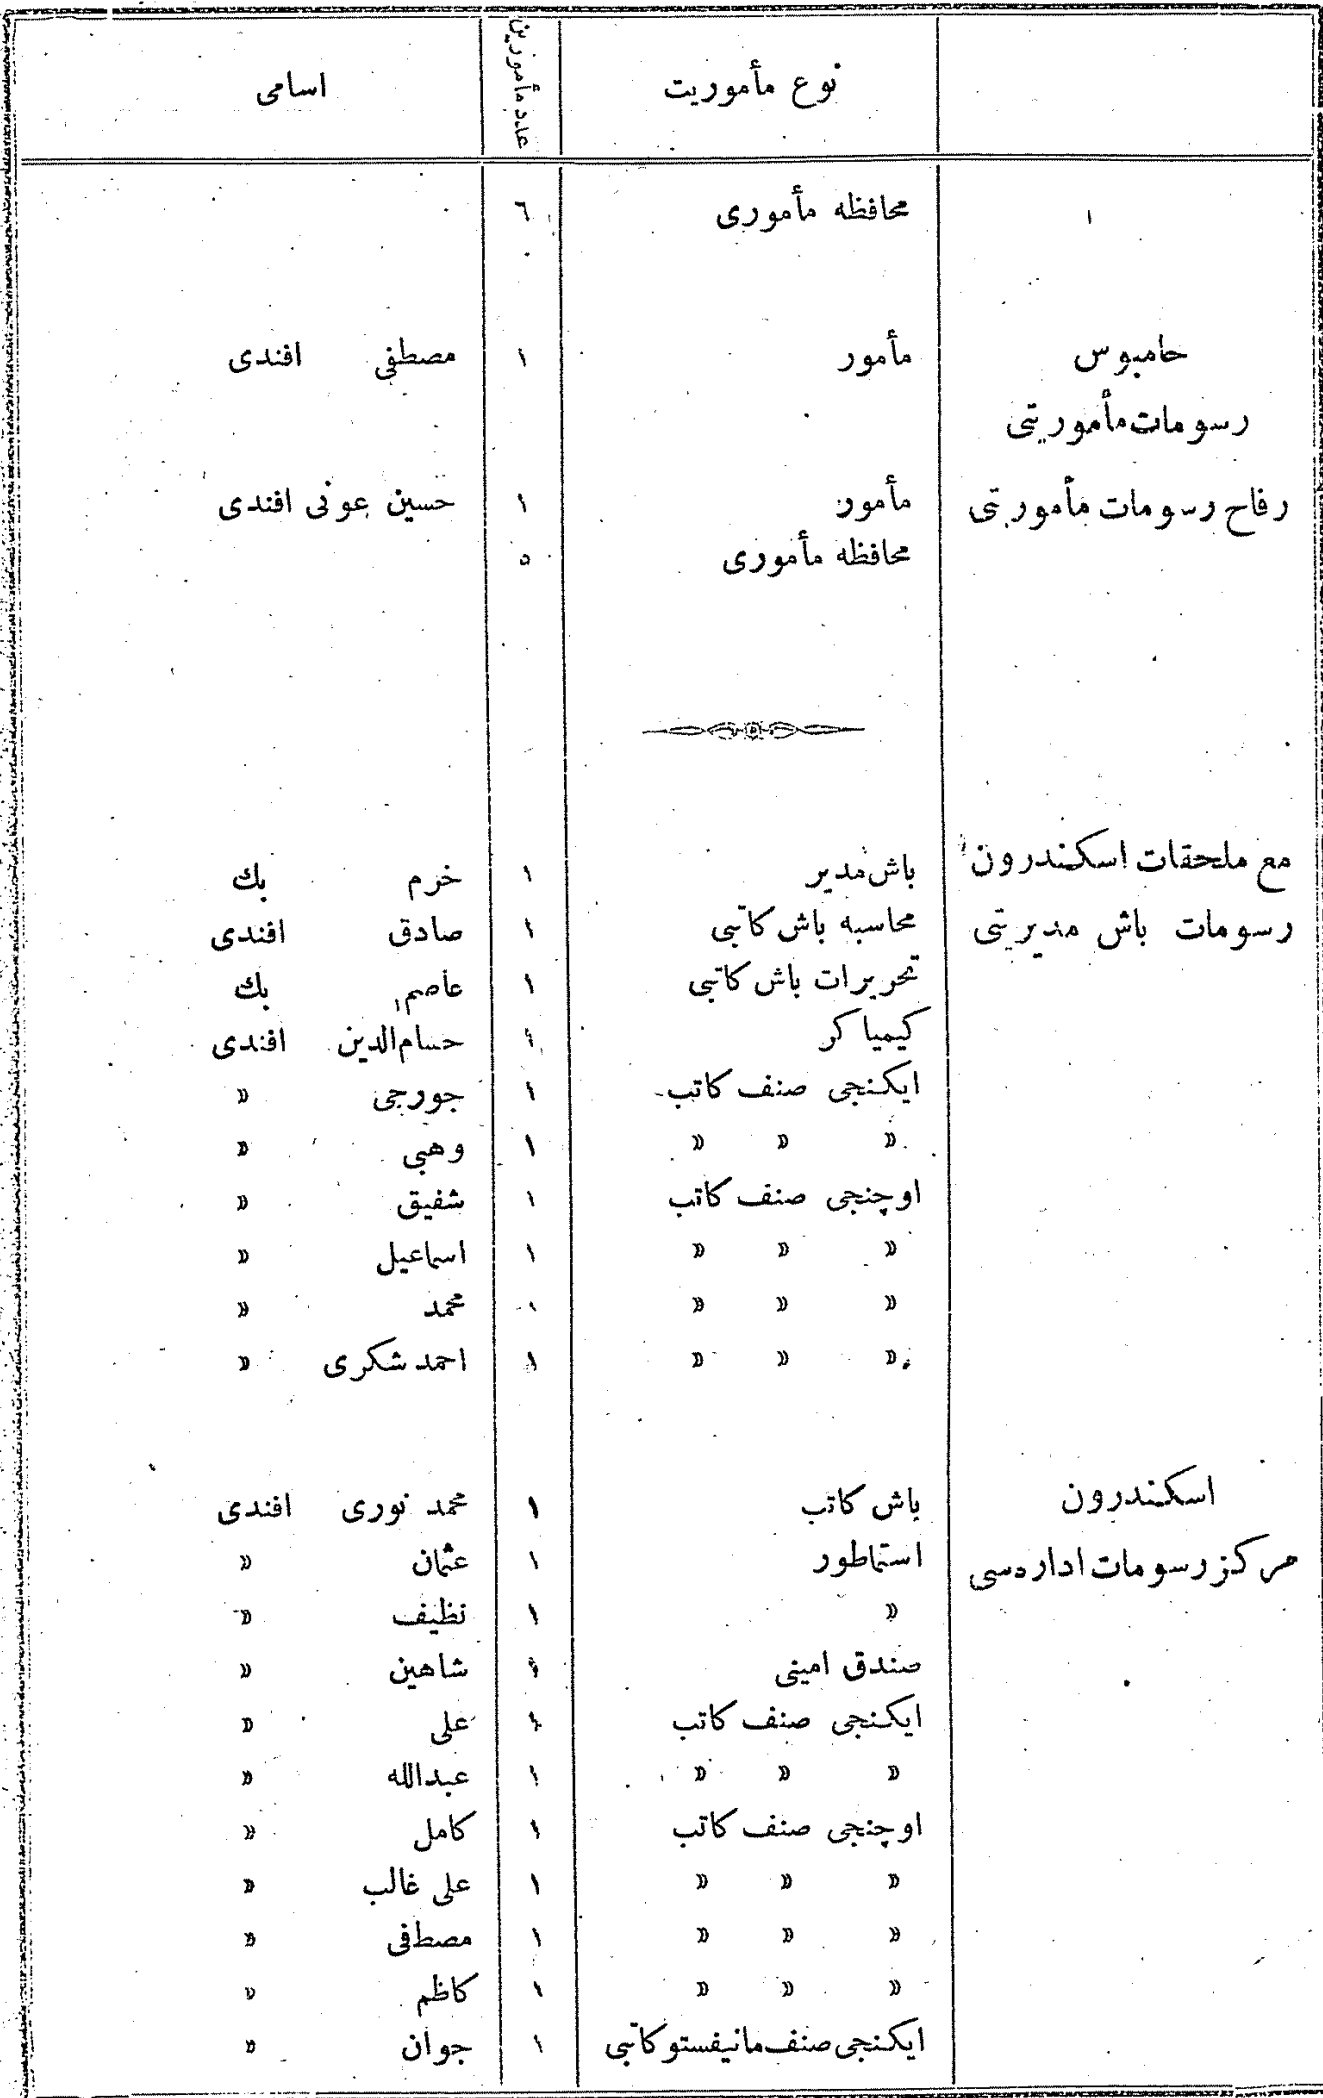 نوع مأموریت عدد مأمورین اسامی
محافظه مأموری ٦
حامبوس مأمور ١ مصطفی افندی
رسومات مأموریتی
رفاح رسومات مأموریتی مأمور ١ حسین عونی افندی
محافظه مأموری ٥
مع ملحقات اسکندرون باش مدیر ١ خرم بك
رسومات باش مدیریتی محاسبه باش کاتبی ١ صادق افندی
تحریرات باش کاتبی ١ عاصم بك
کیمیا کر ١ حسام الدین افندی
ایکنجی صنف کاتب ١ جورجی »
» » » ١ وهبی »
اوچنجی صنف کاتب ١ شفیق »
» » » ١ اسماعیل »
» » » ١ محمد »
» » » ١ احمد شکری »
اسکندرون باش کاتب ١ محمد نوری افندی
مرکز رسومات اداره‌سی استماطور ١ عثمان »
» ١ نظیف »
صندق امینی ١ شاهین »
ایکنجی صنف کاتب ١ علی »
» » » ١ عبدالله »
اوچنجی صنف کاتب ١ کامل »
» » » ١ علی غالب »
» » » ١ مصطفی »
» » » ١ کاظم »
ایکنجی صنف مانیفستو کاتبی ١ جوان »